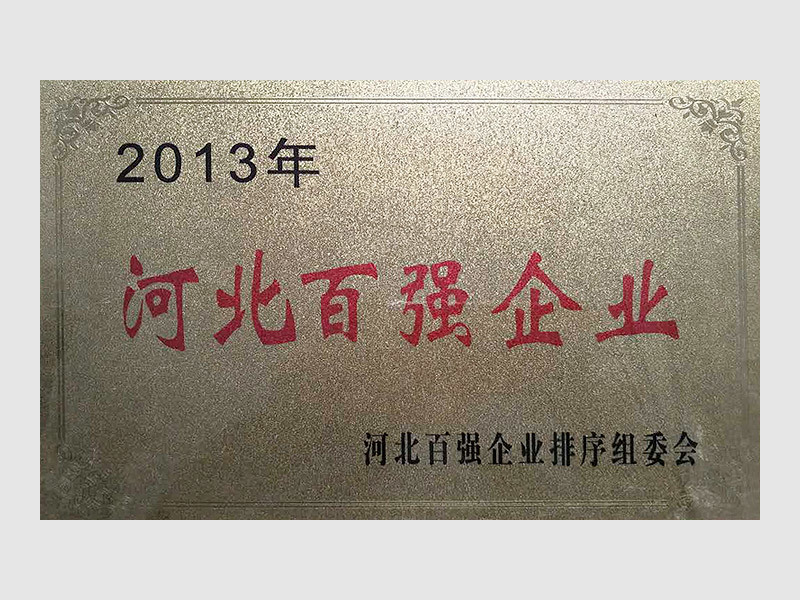 2013年
河北百强企业
河北百强企业排序组委会